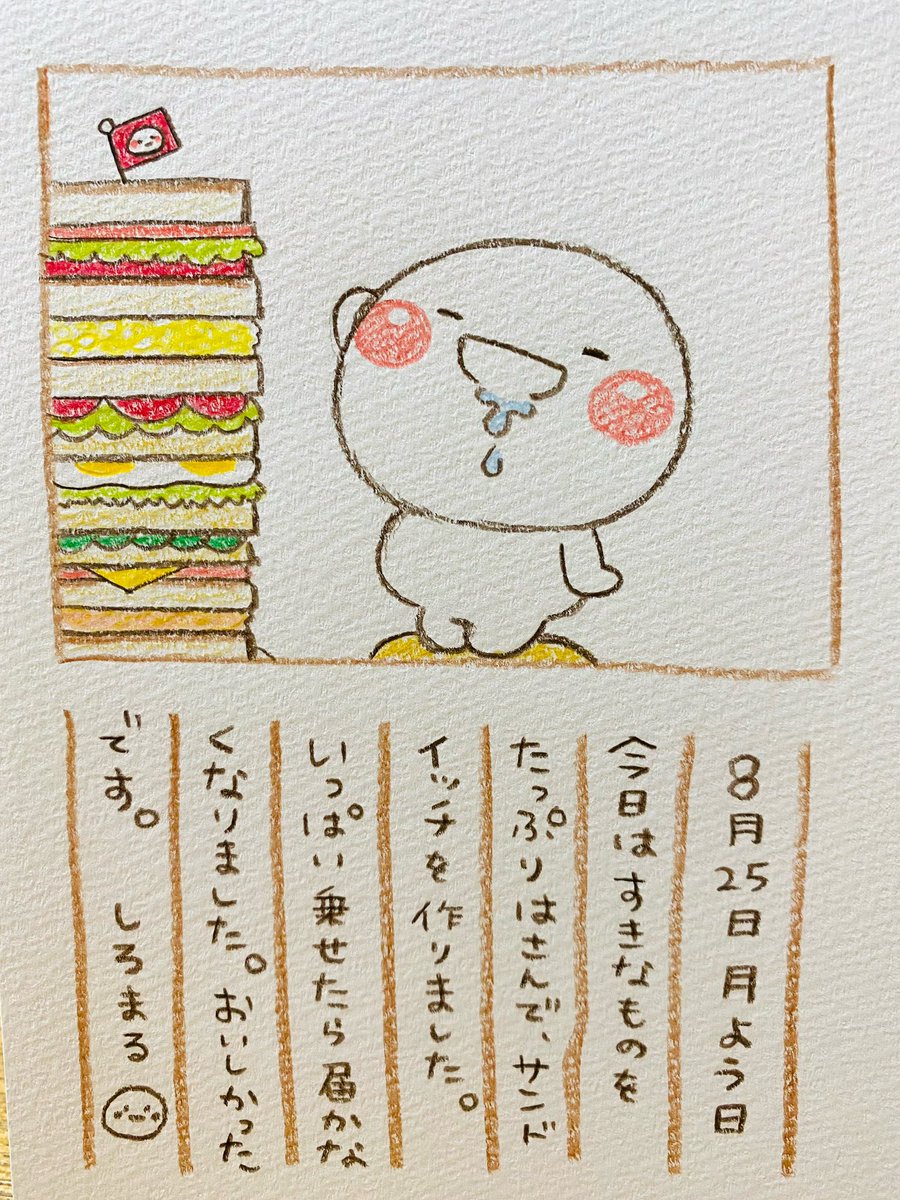 8月25日月よう日
今日はすきなものを
たっぷりはさんで、サンド
イッチを作りました。
いっぱい乗せたら届かな
くなりました。おいしかった
です。 しろまる